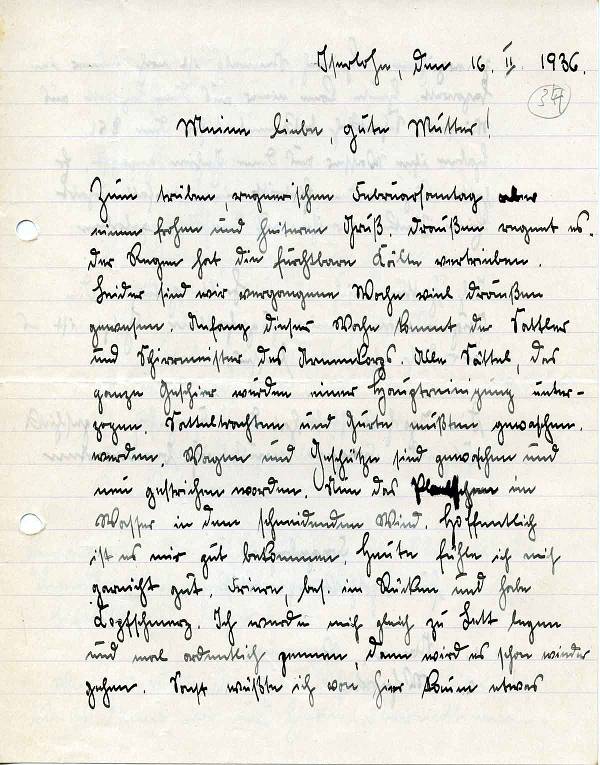 Iserlohn, den 16. II. 1936.
34
Meine liebe, gute Mutter!
Zum trüben, regnerischen Februarsonntag aber
einen frohen und heiteren Gruß. Draußen regnet es.
Der Regen hat die furchtbare Kälte vertrieben.
Leider sind wir vergangene Woche viel draußen
gewesen. Anfang dieser Woche kommt der Sattler
und Schirrmeister des Armeekorps. Alle Sättel, das
ganze Geschirr wurden einer Hauptreinigung unter-
zogen. Satteltrachten und Gurte mußten gewaschen
werden. Wagen und Geschütze sind gewaschen und
neu gestrichen worden. Nun das im
Wasser in dem schneidendem Wind. Hoffentlich
ist es mir gut bekommen. Heute fühle ich mich
garnicht gut. Friere, bes. im Rücken und habe
Kopfschmerz. Ich werde mich gleich zu Bett legen
und mal ordentlich pennen, dann wird es schon wieder
gehen. Sonst wüßte ich von hier kaum etwas